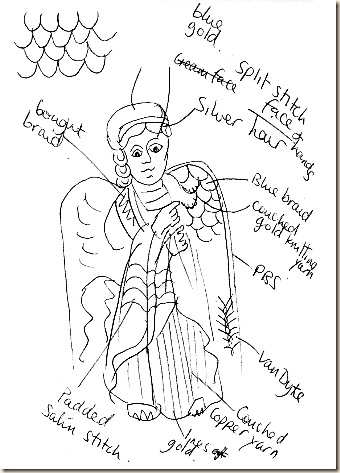 blue
gold.
Cream face
Split stitch
face &
hands
Silver hair
bought
braid
Blue braid
couched
gold knitting
yarn
PBS
Van Dyke
Couched
Copper yarn
gold
Padded
Satin stitch